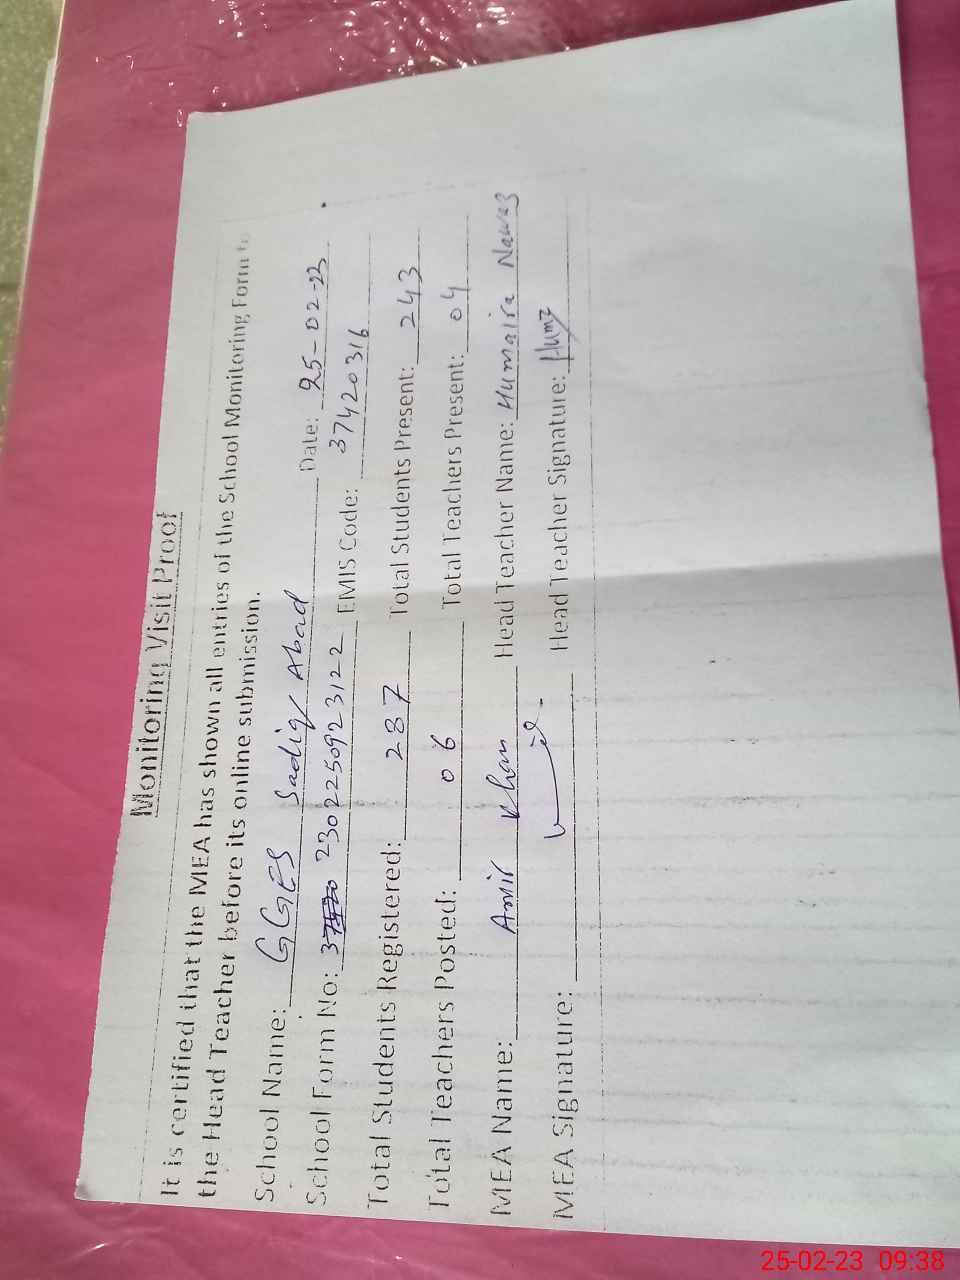 Monitoring Visit Proof
It is certified that the MEA has shown all entries of the School Monitoring Form to
the Head Teacher before its online submission.
School Name: GGES Sadiq Abad Date: 25-02-23
School Form No: 2302250923122 EMIS Code: 37420316
Total Students Registered: 287 Total Students Present: 243
Total Teachers Posted: 06 Total Teachers Present: 04
MEA Name: Amir Khan Head Teacher Name: Humaira Nawaz
MEA Signature: Head Teacher Signature:
25-02-23 09:38